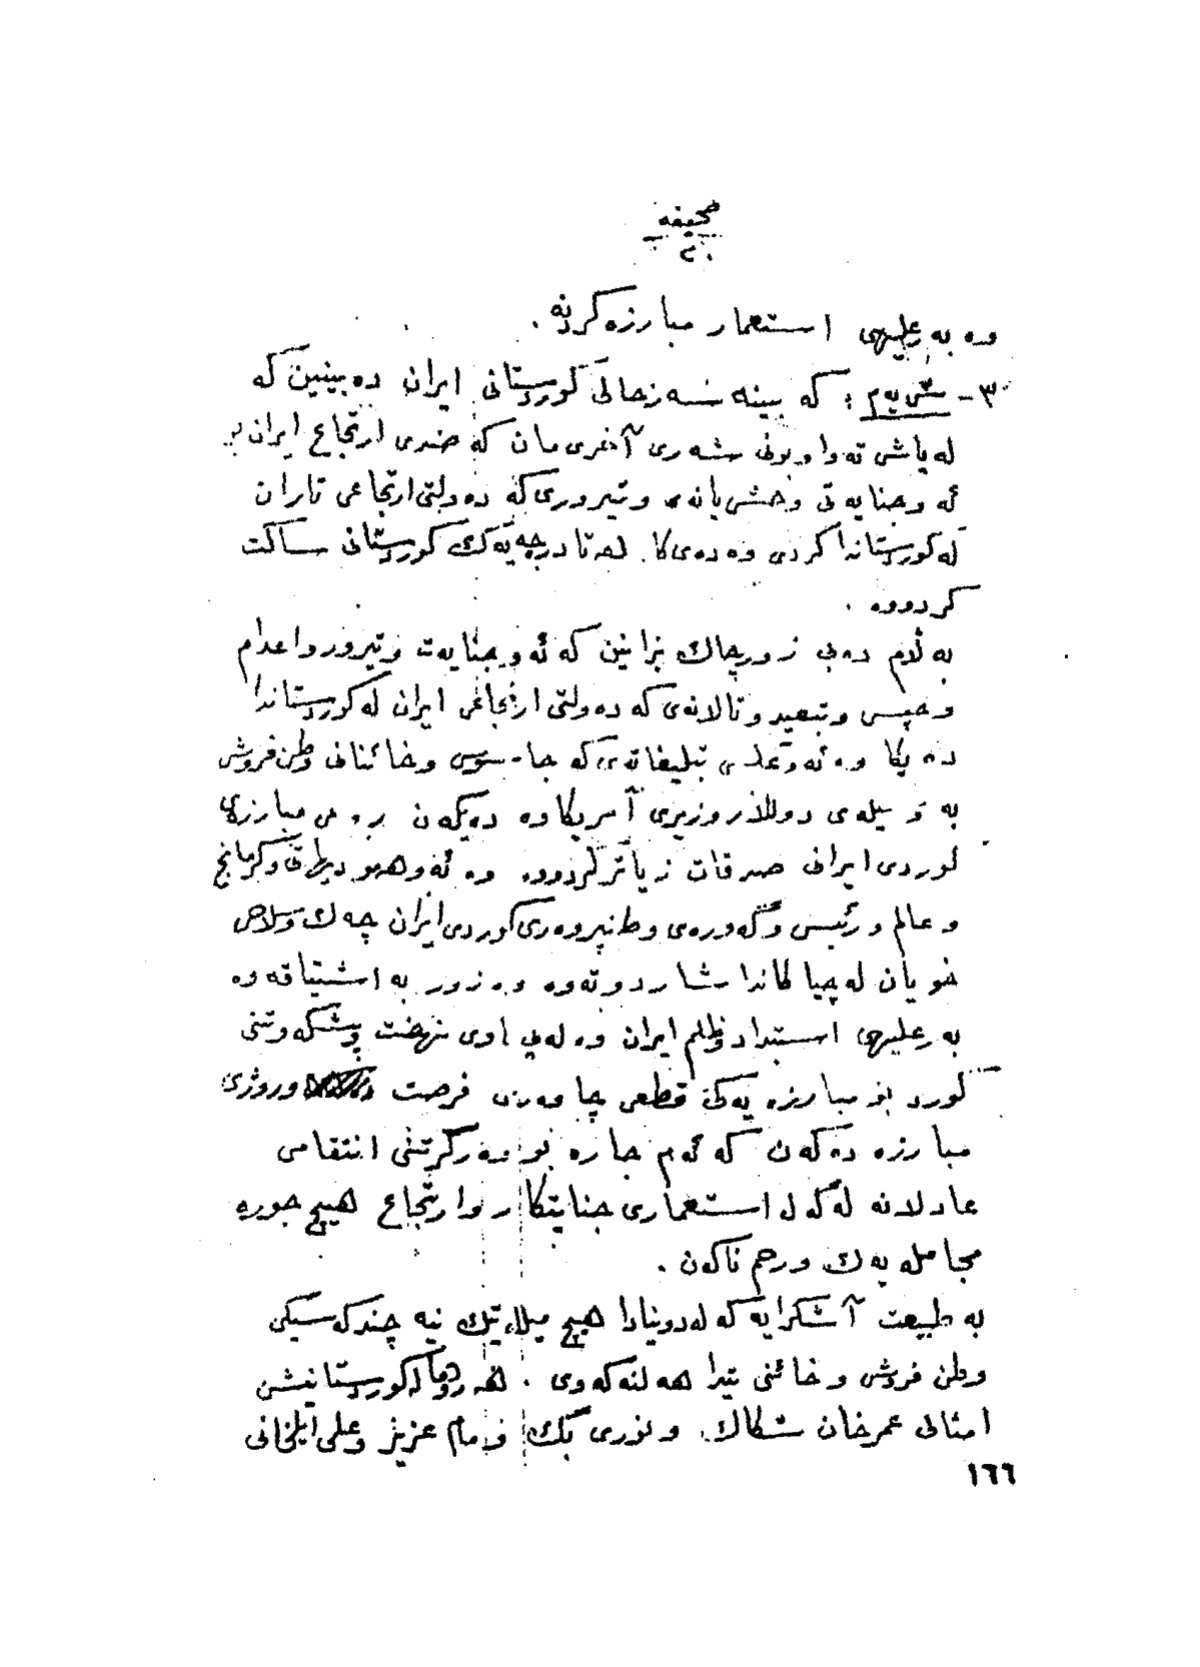 صحیفه
٢٠
وه به رعلیهی استعمار مبارزه کردنه .
٣- سێ یه م : که بینه سه رحالی کوردستانی ایران ده بینین که
له پاش ته واو بونی شه ری آخری مان که ضدی ارتجاع ایران بو
ئه و جنایه تی وحشی یانه و تیروری که ده ولتی ارتجاعی تاران
له کوردستاندا کردی وه ده ی کا . هه تا درجه یه کی کوردستانی ساکت
کردووه .
به ڵام ده بی زورچاك بزانین که ئه و جنایه ت و تیرور و اعدام
و حپس و تبعید و تالانه ی که ده ولتی ارتجاعی ایران له کوردستاندا
ده یکا وه ئه و تبلیغاته ی که جاسوسی و خائنانی وطن فروش
به وسیله ی دوللار و زیری آمریکاوه ده یکه ن مبارزی
کوردی ایرانی صدقات زیاتر کردووه وه ئه و هه مو دیهاتی و کرمانج
و عالم و رئیس و گه وره ی وطنپروه ری کوردی ایران چه ك و سلاحی
خویان له چیا کاندا شاردوته وه وه زور به اشتیاقه وه
به رعلیهی استبداد و ظلم ایران وه له پی ناوی نهضت پیشکه وتنی
کورد بو مبارزه یه کی قطعی چاوه ری فرصت و روژی
مبارزه ده که ن که ئه م جاره بو وه رگرتنی انتقامی
عادلانه له گه ل استعماری جنایتکار و ارتجاع هیچ جوره
مجامله یه ك و رحم ناکه ن .
به طبیعت آشکرایه که له دونیادا هیچ میلله تیك نیه چند که سیکی
وطن فروش و خائنی تیدا هه لنه که وی . هه روها له کوردستانیشن
امثالی عمرخان شکاك و نوری بگ و مام عزیز و علی ایلخانی
١٦٦